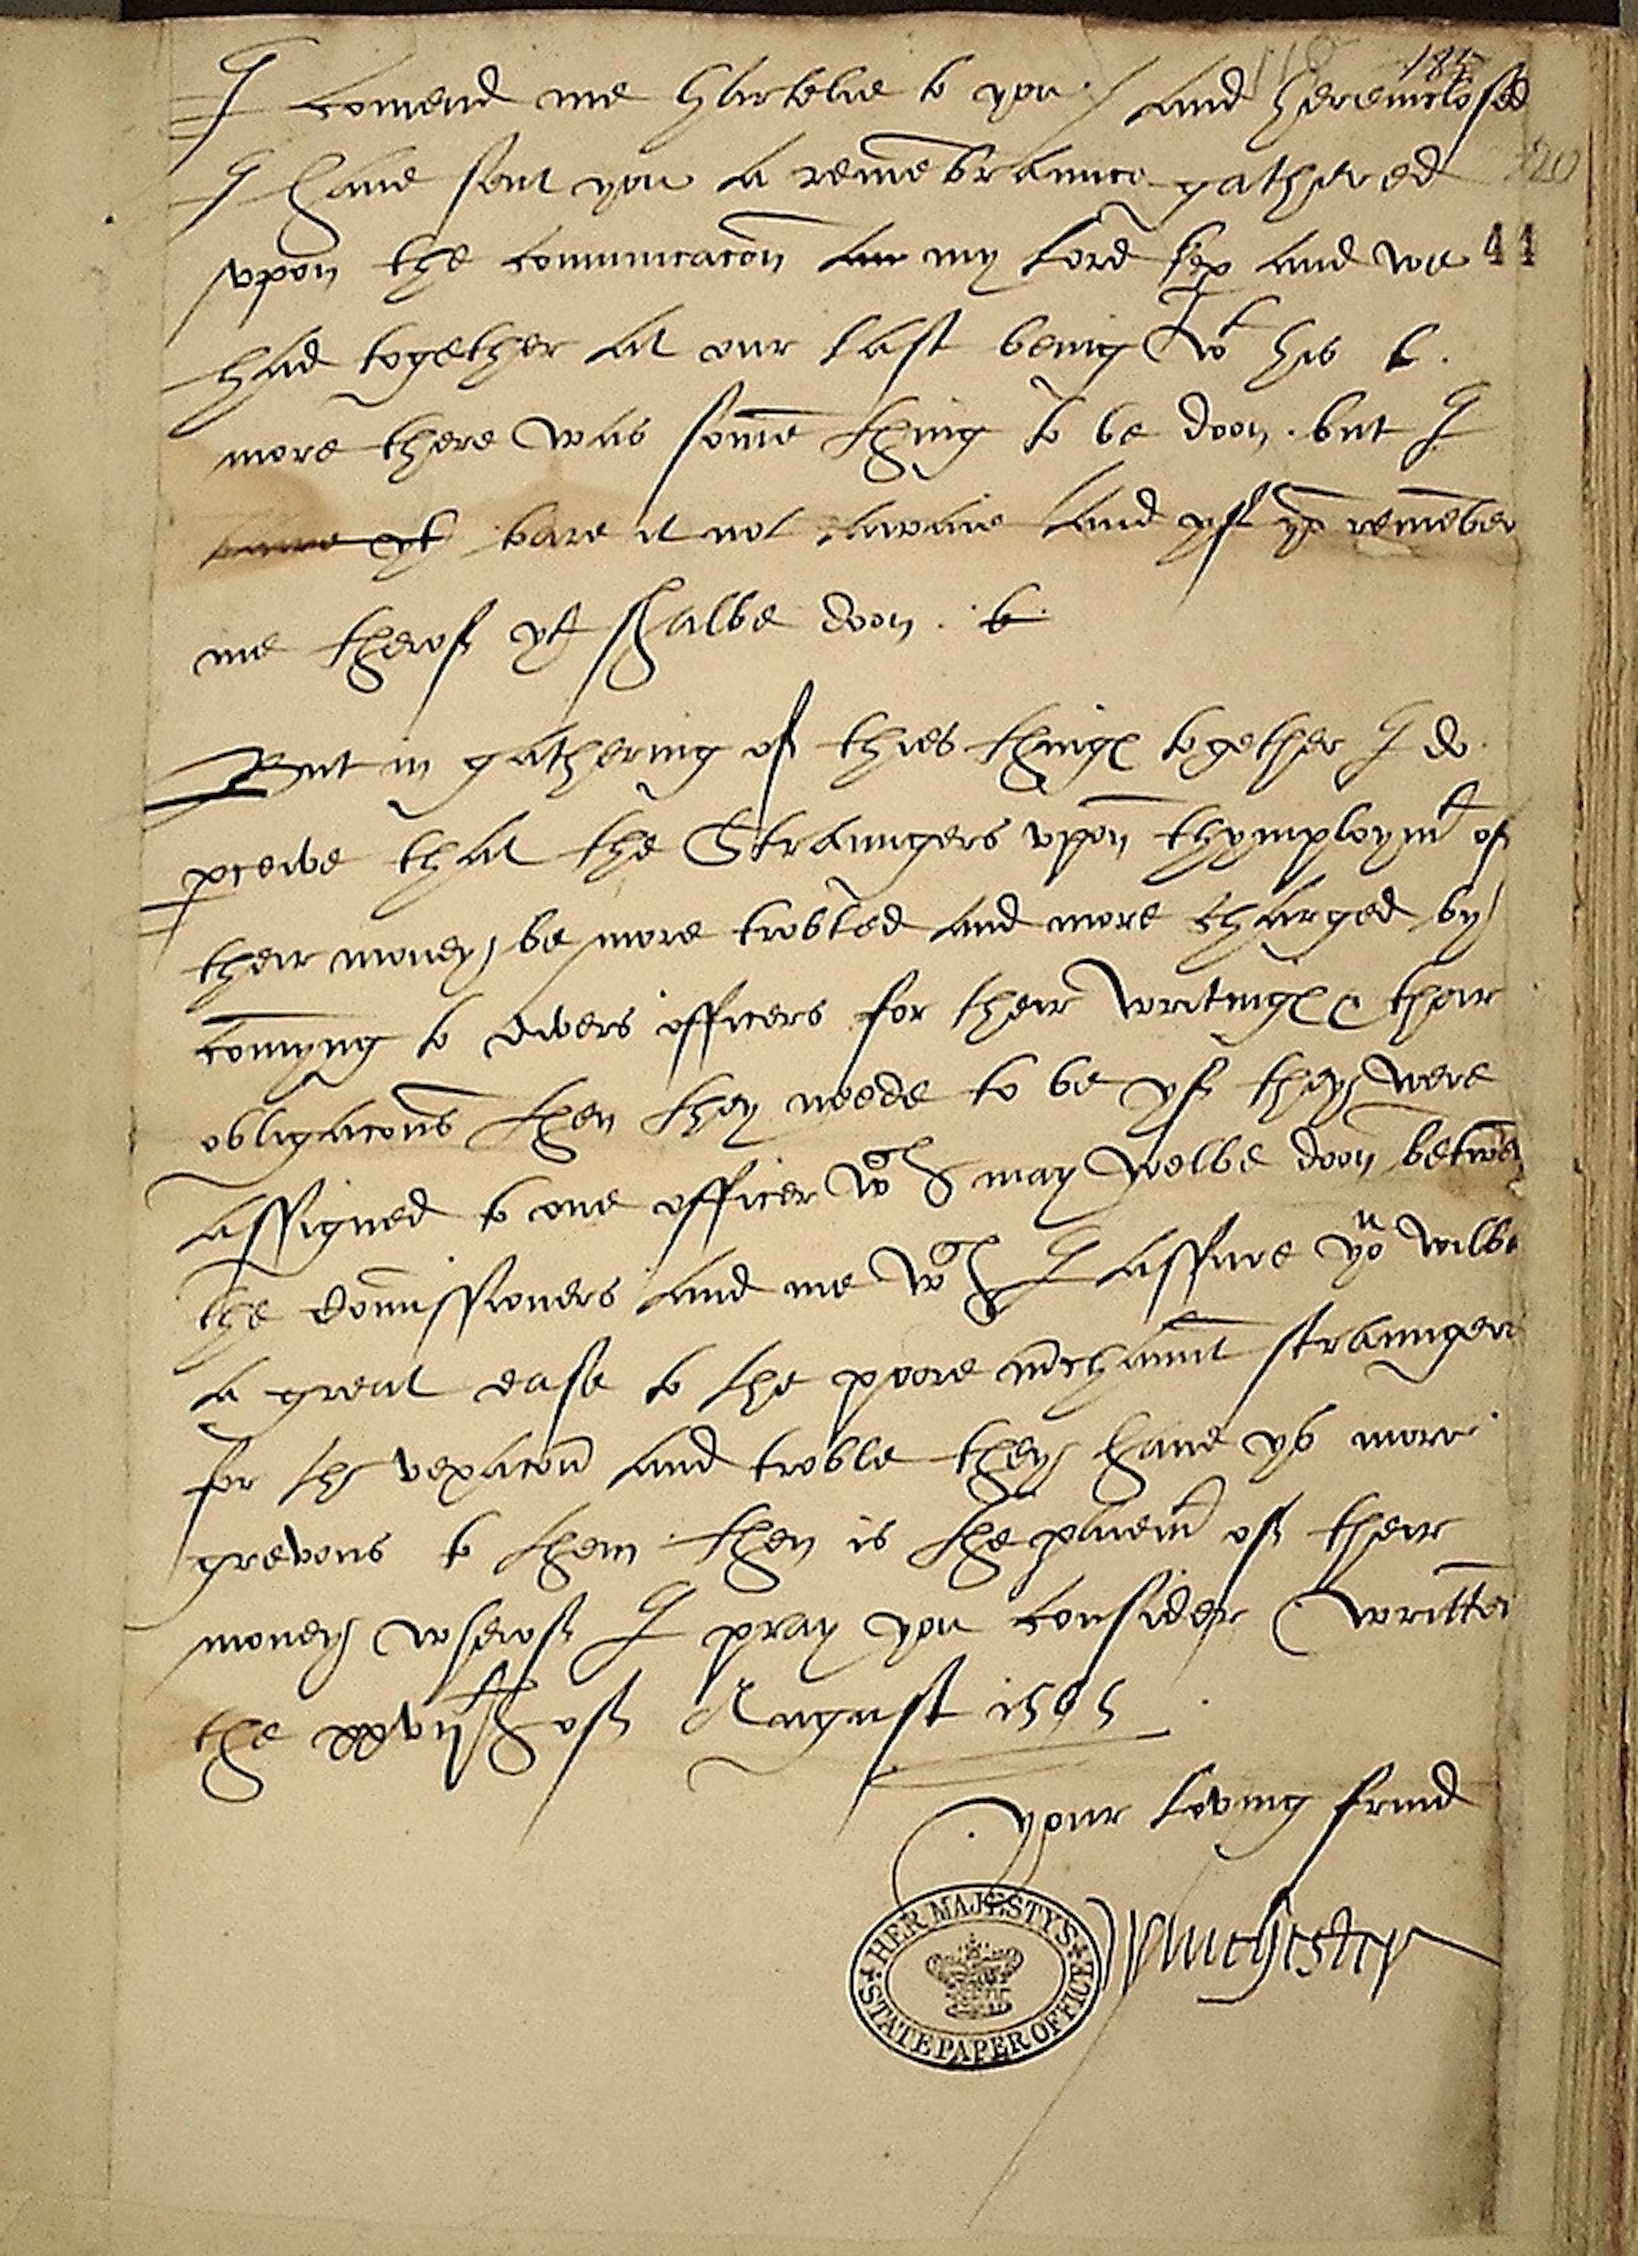 187
I comend me hartelie to you / and hereinclosed
I haue sent you a remēbraunce gathered
20
vpon the comunicacōn my Lord and we
44
had together at our last being wt his L.
more there was somē thing to be doon. but I
yt bare it not awaie and yf ye remēber
me therof yt shalbe doon.
But in gathering of thies things together I do
pceive that the Straungers vpon thymploymt of
their money be more trobled and more charged by
comyng to divers officers for their writings & their
obligacōns then they neede to be yf they were
assigned to one officer wch may welbe doon betwen
the Comissioners and me wch I assure you wilbe
a great ease to the poore mchaunt straungers
for the vexacōn and troble they haue ys more
grevous to them then is the paiemt of their
money wherof I pray you consider Written
the xxvijth of August 1565
your loving frind
Winchester
HER MAJESTY'S
STATE PAPER OFFICE